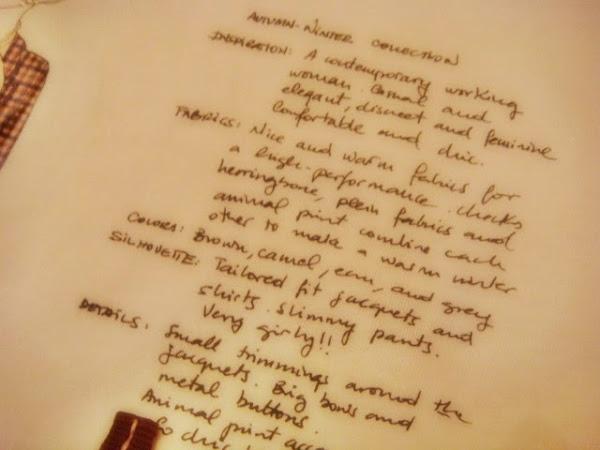 AUTUMN-WINTER COLLECTION
INSPIRATION: A contemporary working
woman. Casual and
elegant, discreet and feminine
Confortable and chic.
FABRICS: Nice and warm fabrics for
a high-performance. checks
herringbone, plein fabrics and
animal print combine each
other to make a warm winter
COLORS: Brown, camel, ecru, and grey
SILHOUETTE: Tailored fit jacquets and
shirts. Slimmy pants.
Very girly!!
DETAILS: Small trimmings around the
jacquets. Big bows and
metal buttons.
Animal print
So chic